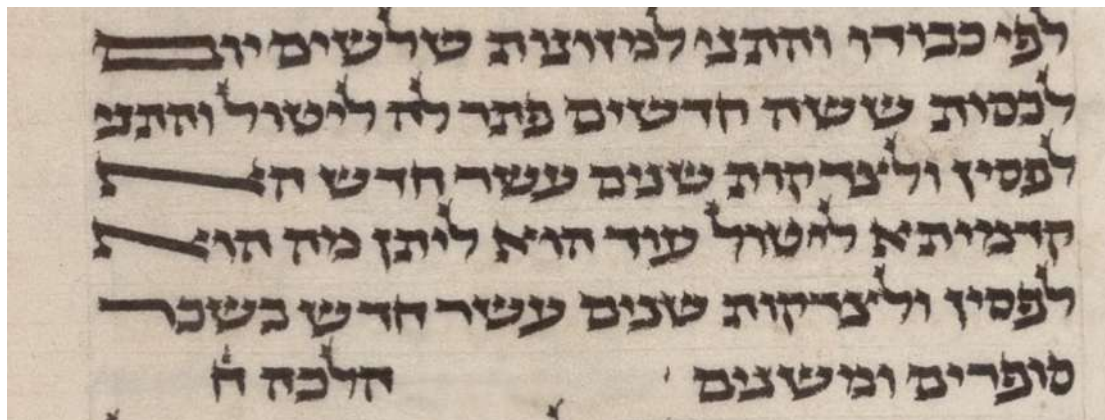 לפי כבודו והתני למזונות שלשים יום
לכסות ששה חדשים פתר לה ליטול והתני
לפסין ולצדקות שנים עשר חדש הא
קדמיתא ליטול עוד הוא ליתן מה הוא
לפסין ולצדקות שנים עשר חדש בשכר
סופרים ומשנים הלכה ח